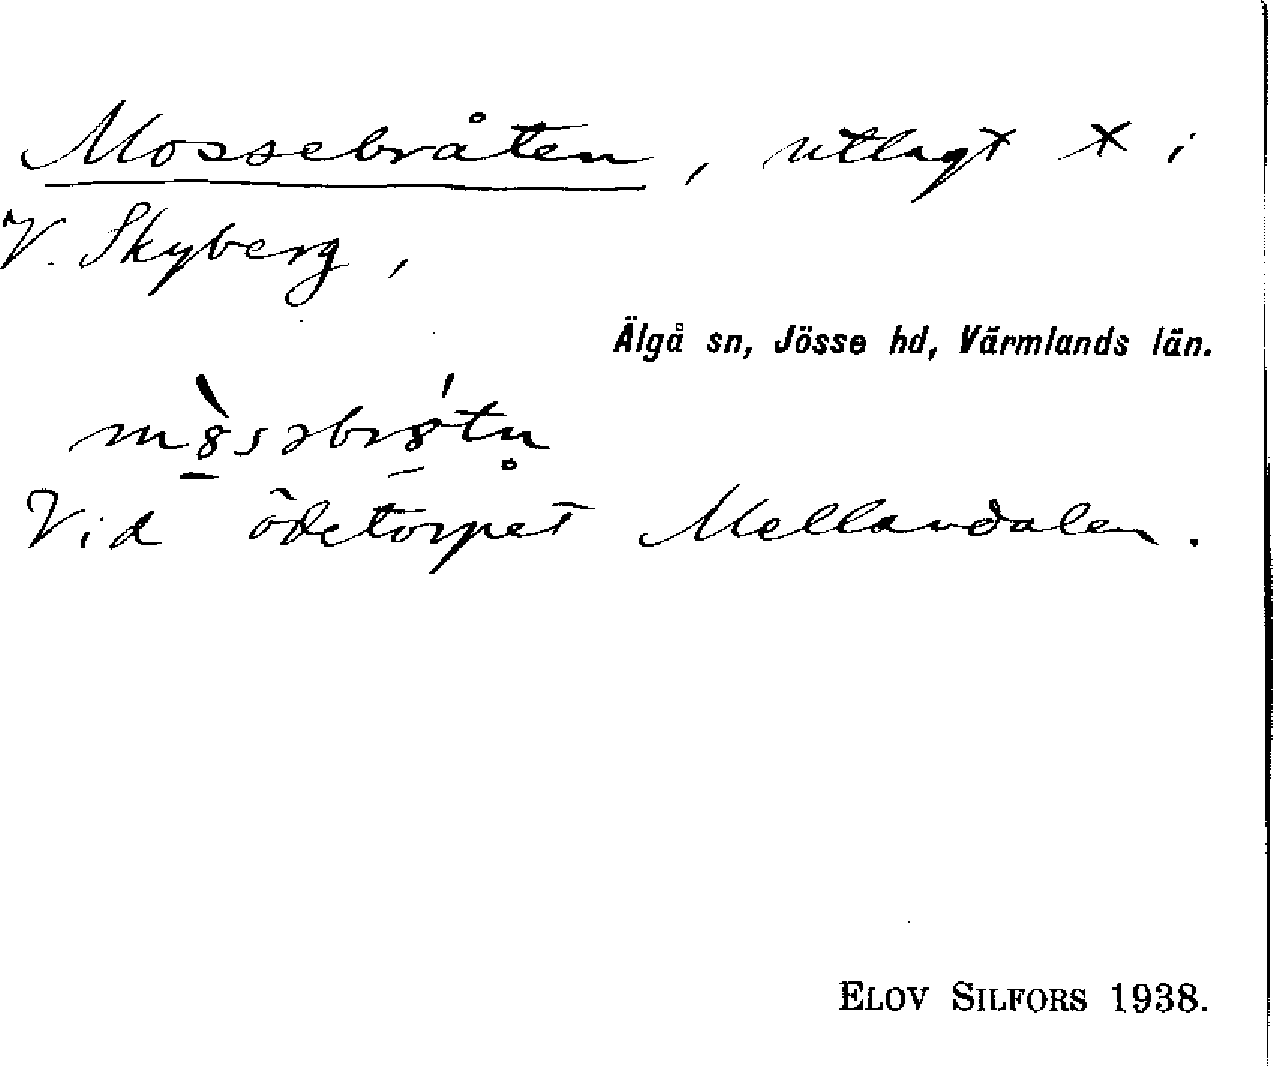 Mossebråten, utlagt × i
V. Skyberg,
Älgå sn, Jösse hd, Värmlands län.
Vid ödetorpet Mellandalen.
ELOV SILFORS 1938.